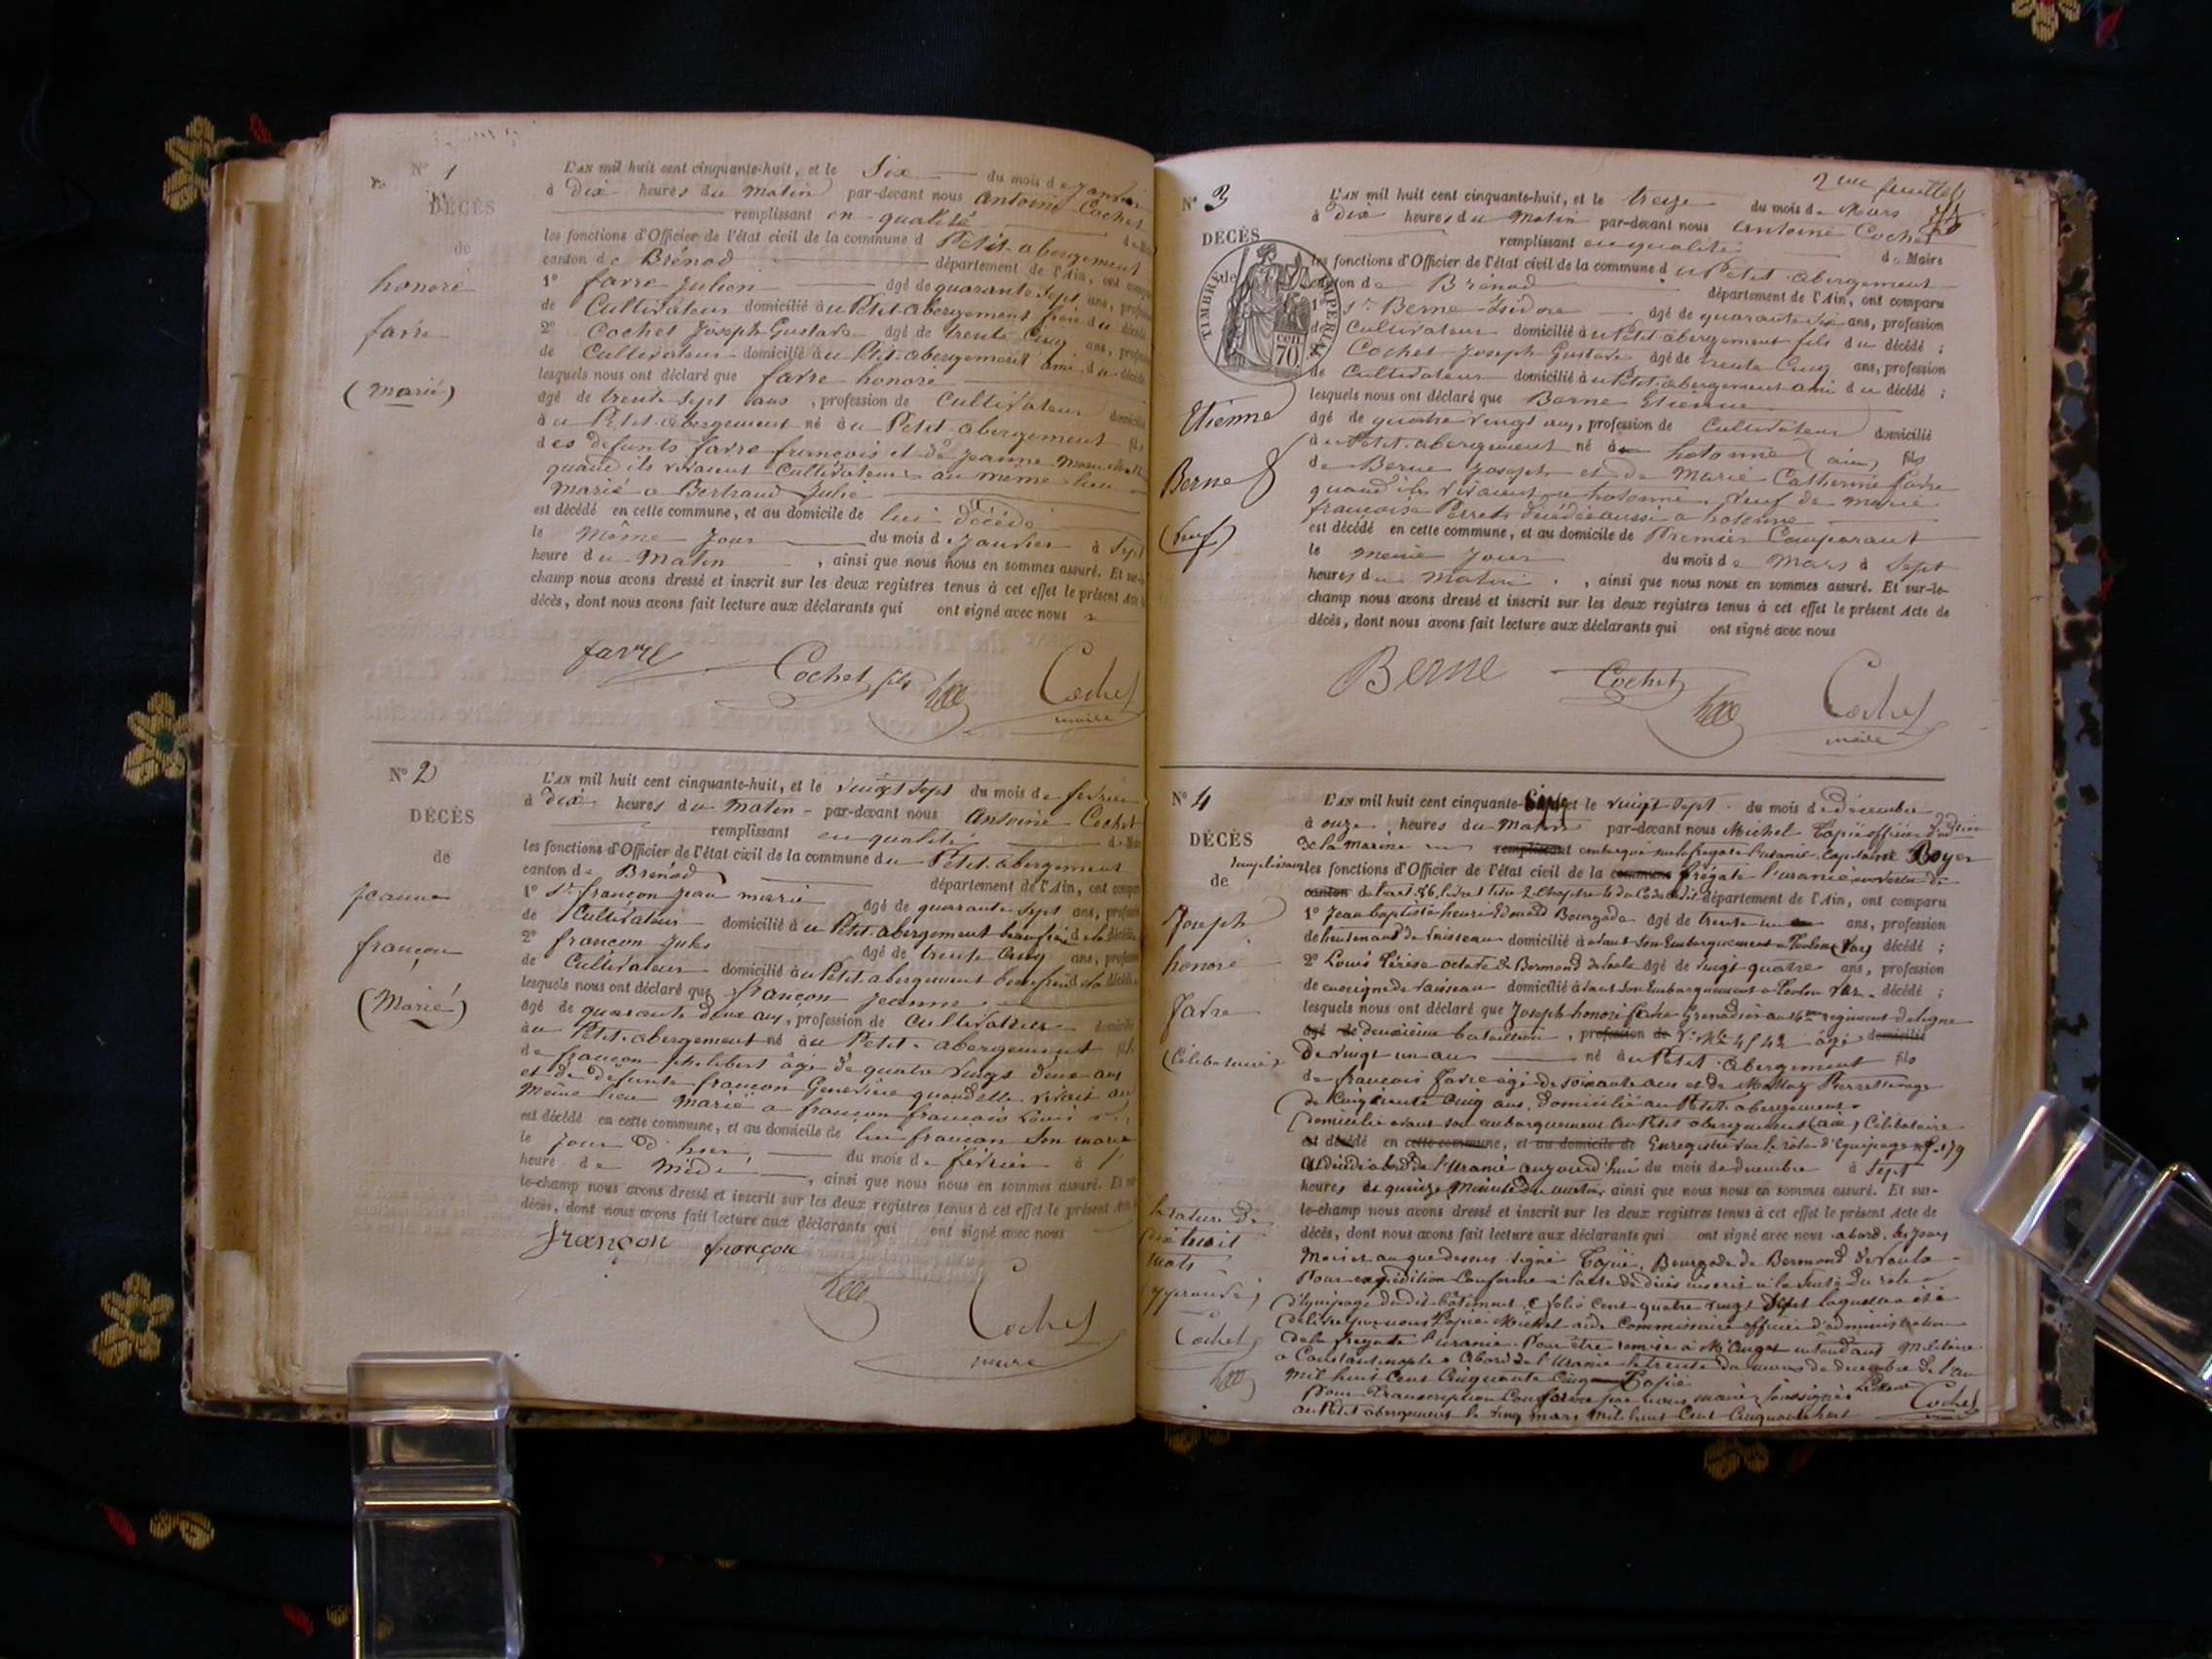 N° 1
DÉCÈS
de
honoré
favre
(marié)
L'AN mil huit cent cinquante-huit, et le Six du mois de Janvier
à dix heures du matin par-devant nous Antoine Cochet
remplissant en qualité de Maire
les fonctions d'Officier de l'état civil de la commune d Petit abergement
canton de Brénod département de l'Ain, ont comparu
1° favre Julien âgé de quarante sept ans, profession
de Cultivateur domicilié au Petit abergement frère du décédé
2° Cochet Joseph Gustave âgé de trente Cinq ans, profession
de Cultivateur domicilié au Ptit abergement ami du décédé
lesquels nous ont déclaré que favre honoré
âgé de trente sept ans, profession de Cultivateur domicilié
au Petit abergement né au Petit abergement fils
des defunts favre françois et de jeanne marie
quand ils vivaient Cultivateurs au meme lieu
marié a Bertrand Julie
est décédé en cette commune, et au domicile de lui décédé
le Même Jour du mois de Janvier à Sept
heure du Matin, ainsi que nous nous en sommes assuré. Et sur-le-
champ nous avons dressé et inscrit sur les deux registres tenus à cet effet le présent Acte de
décès, dont nous avons fait lecture aux déclarants qui ont signé avec nous
favre Cochet fils Cochet
maire
N° 2
DÉCÈS
de
jeanne
françon
(Marié)
L'AN mil huit cent cinquante-huit, et le vingt Sept du mois de fevrier
à dix heures du matin par-devant nous Antoine Cochet
remplissant en qualité de Maire
les fonctions d'Officier de l'état civil de la commune du Petit abergement
canton de Brenod département de l'Ain, ont comparu
1° Sr françon Jean marie âgé de quarante Sept ans, profession
de Cultivateur domicilié au Petit abergement beau frère de la décédée
2° françon Jules âgé de trente Cinq ans, profession
de Cultivateur domicilié au Petit abergement beau frère de la décédée
lesquels nous ont déclaré que françon jeanne
âgé de quarante deux ans, profession de Cultivatrice domicilié
au Petit abergement né au Petit abergement fils
de françon philibert âgé de quatre vingt deux ans
et de defunte françon Geneviève quand elle vivait au
même lieu Marié a françon françois Louis
est décédé en cette commune, et au domicile de lui françon Son marie
le jour d'hier, du mois de février à
heure de midi, ainsi que nous nous en sommes assuré. Et sur-
le-champ nous avons dressé et inscrit sur les deux registres tenus à cet effet le présent Acte de
décès, dont nous avons fait lecture aux déclarants qui ont signé avec nous
françon françon
Cochet
maire
2me feuillet
N° 3
DÉCÈS
de
TIMBRE IMPERIAL
cen
70
Etienne
Berne
(veuf)
L'AN mil huit cent cinquante-huit, et le treize du mois de Mars
à dix heures du Matin par-devant nous Antoine Cochet
remplissant en qualité de Maire
les fonctions d'Officier de l'état civil de la commune du Petit abergement
canton de Brénod département de l'Ain, ont comparu
1° Sr Berne Isidore âgé de quarante Six ans, profession
de Cultivateur domicilié au Petit abergement fils du décédé ;
Cochet Joseph Gustave âgé de trente Cinq ans, profession
de Cultivateur domicilié au Petit abergement ami du décédé ;
lesquels nous ont déclaré que Berne Etienne
âgé de quatre vingt ans, profession de Cultivateur domicilié
au Petit abergement né à hotonne (ain) fils
de Berne Joseph et de Marie Catherine favre
quand ils vivaient a hotonne, veuf de Marie
françoise Perret décédée aussi a hotonne
est décédé en cette commune, et au domicile de Premier Comparant
le même jour du mois de Mars à Sept
heures du Matin, ainsi que nous nous en sommes assuré. Et sur-le-
champ nous avons dressé et inscrit sur les deux registres tenus à cet effet le présent Acte de
décès, dont nous avons fait lecture aux déclarants qui ont signé avec nous
Berne Cochet Cochet
maire
N° 4
DÉCÈS
de
Joseph
honoré
favre
(Célibataire)
L'AN mil huit cent cinquante et le vingt Sept du mois de décembre
à onze heures du Matin par-devant nous Michel Tapié officier d'administration
de la marine remplissant embarqué sur la fregate l'uranie capitaine Royer
remplissant les fonctions d'Officier de l'état civil de la commune frégate l'uranie en vertu de
canton de l'art 86, livre 1 titre 2 Chapitre 4 du Code département de l'Ain, ont comparu
1° Jean baptiste henri Edouard Bourgade âgé de trente un ans, profession
de lieutenant de vaisseau domicilié avant Son Embarquement a Toulon (Var) décédé ;
2° Louis Octave de Bermond de Vaulx âgé de vingt quatre ans, profession
de enseigne de vaisseau domicilié avant Son Embarquement a Toulon Var. décédé ;
lesquels nous ont déclaré que Joseph honoré favre Grenadier au regiment de ligne
âgé de deuxième bataillon, profession de 4542 âgé domicilié
de vingt un an né au Petit abergement fils
de françois favre âgé de soixante ans et de Pierrette agé
de Cinquante Cinq ans, domicilié au Petit abergement
domicilié avant son embarquement au Petit abergement (ain) Célibataire
est décédé en cette commune, et au domicile de Enregistré sur le rôle d'équipage n° 179
est décédé abord de l'uranie aujourd'hui du mois de décembre à Sept
heures et quinze Minutes du matin, ainsi que nous nous en sommes assuré. Et sur-
le-champ nous avons dressé et inscrit sur les deux registres tenus à cet effet le présent Acte de
décès, dont nous avons fait lecture aux déclarants qui ont signé avec nous abord, les jours
Mois et an que dessus Signé Tapié, Bourgade de Bermond de Vaulx
Pour expédition Conforme a l'acte de décès inscrit a la suite du role
d'équipage dudit bâtiment folio Cent quatre vingt Sept laquelle a été
délivré par nous Tapié Michel aide Commissaire officier d'administration
de la fregate l'uranie. Pour être remise a Mr intendant Militaire
a Constantinople abord de l'Uranie le trente du mois de decembre de l'an
mil huit Cent Cinquante Cinq Tapié
Pour Transcription Conforme par nous maire Soussigné
au Petit abergement le Cinq mars mil huit Cent Cinquante huit
Le Maire
Cochet
la rature de
dix huit
mots
approuvés
Cochet